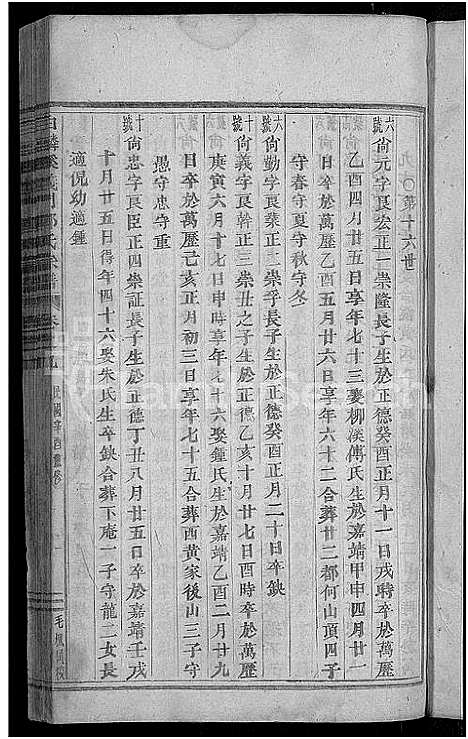 九十〇第十六世
六號 尙元字良宏正一崇隆長子生於正德癸酉正月十一日戌時卒於萬歷
乙酉四月廿五日享年七十三娶柳溪傅氏生於嘉靖甲申四月廿一
日卒於萬歷乙酉五月廿六日享年六十二合葬廿二都何山頂四子
守春守夏守秋守冬
六號 尙勤字良業正二崇孚長子生於正德癸酉正月二十日卒缺
十號 尙義字良幹正三崇丑之子生於正德乙亥十月廿七日酉時卒於萬歷
庚寅六月十七日申時享年七十六娶鍾氏生於嘉靖乙酉二月廿九
日卒於萬歷己亥正月初三日享年七十五合葬西黃家後山三子守
愚守忠守重
十號 尙忠字良臣正四崇証長子生於正德丁丑八月廿五日卒於嘉靖壬戌
十月廿五日得年四十六娶朱氏生卒缺合葬下庵一子守龍二女長
適倪幼適鍾
民國辛酉重修